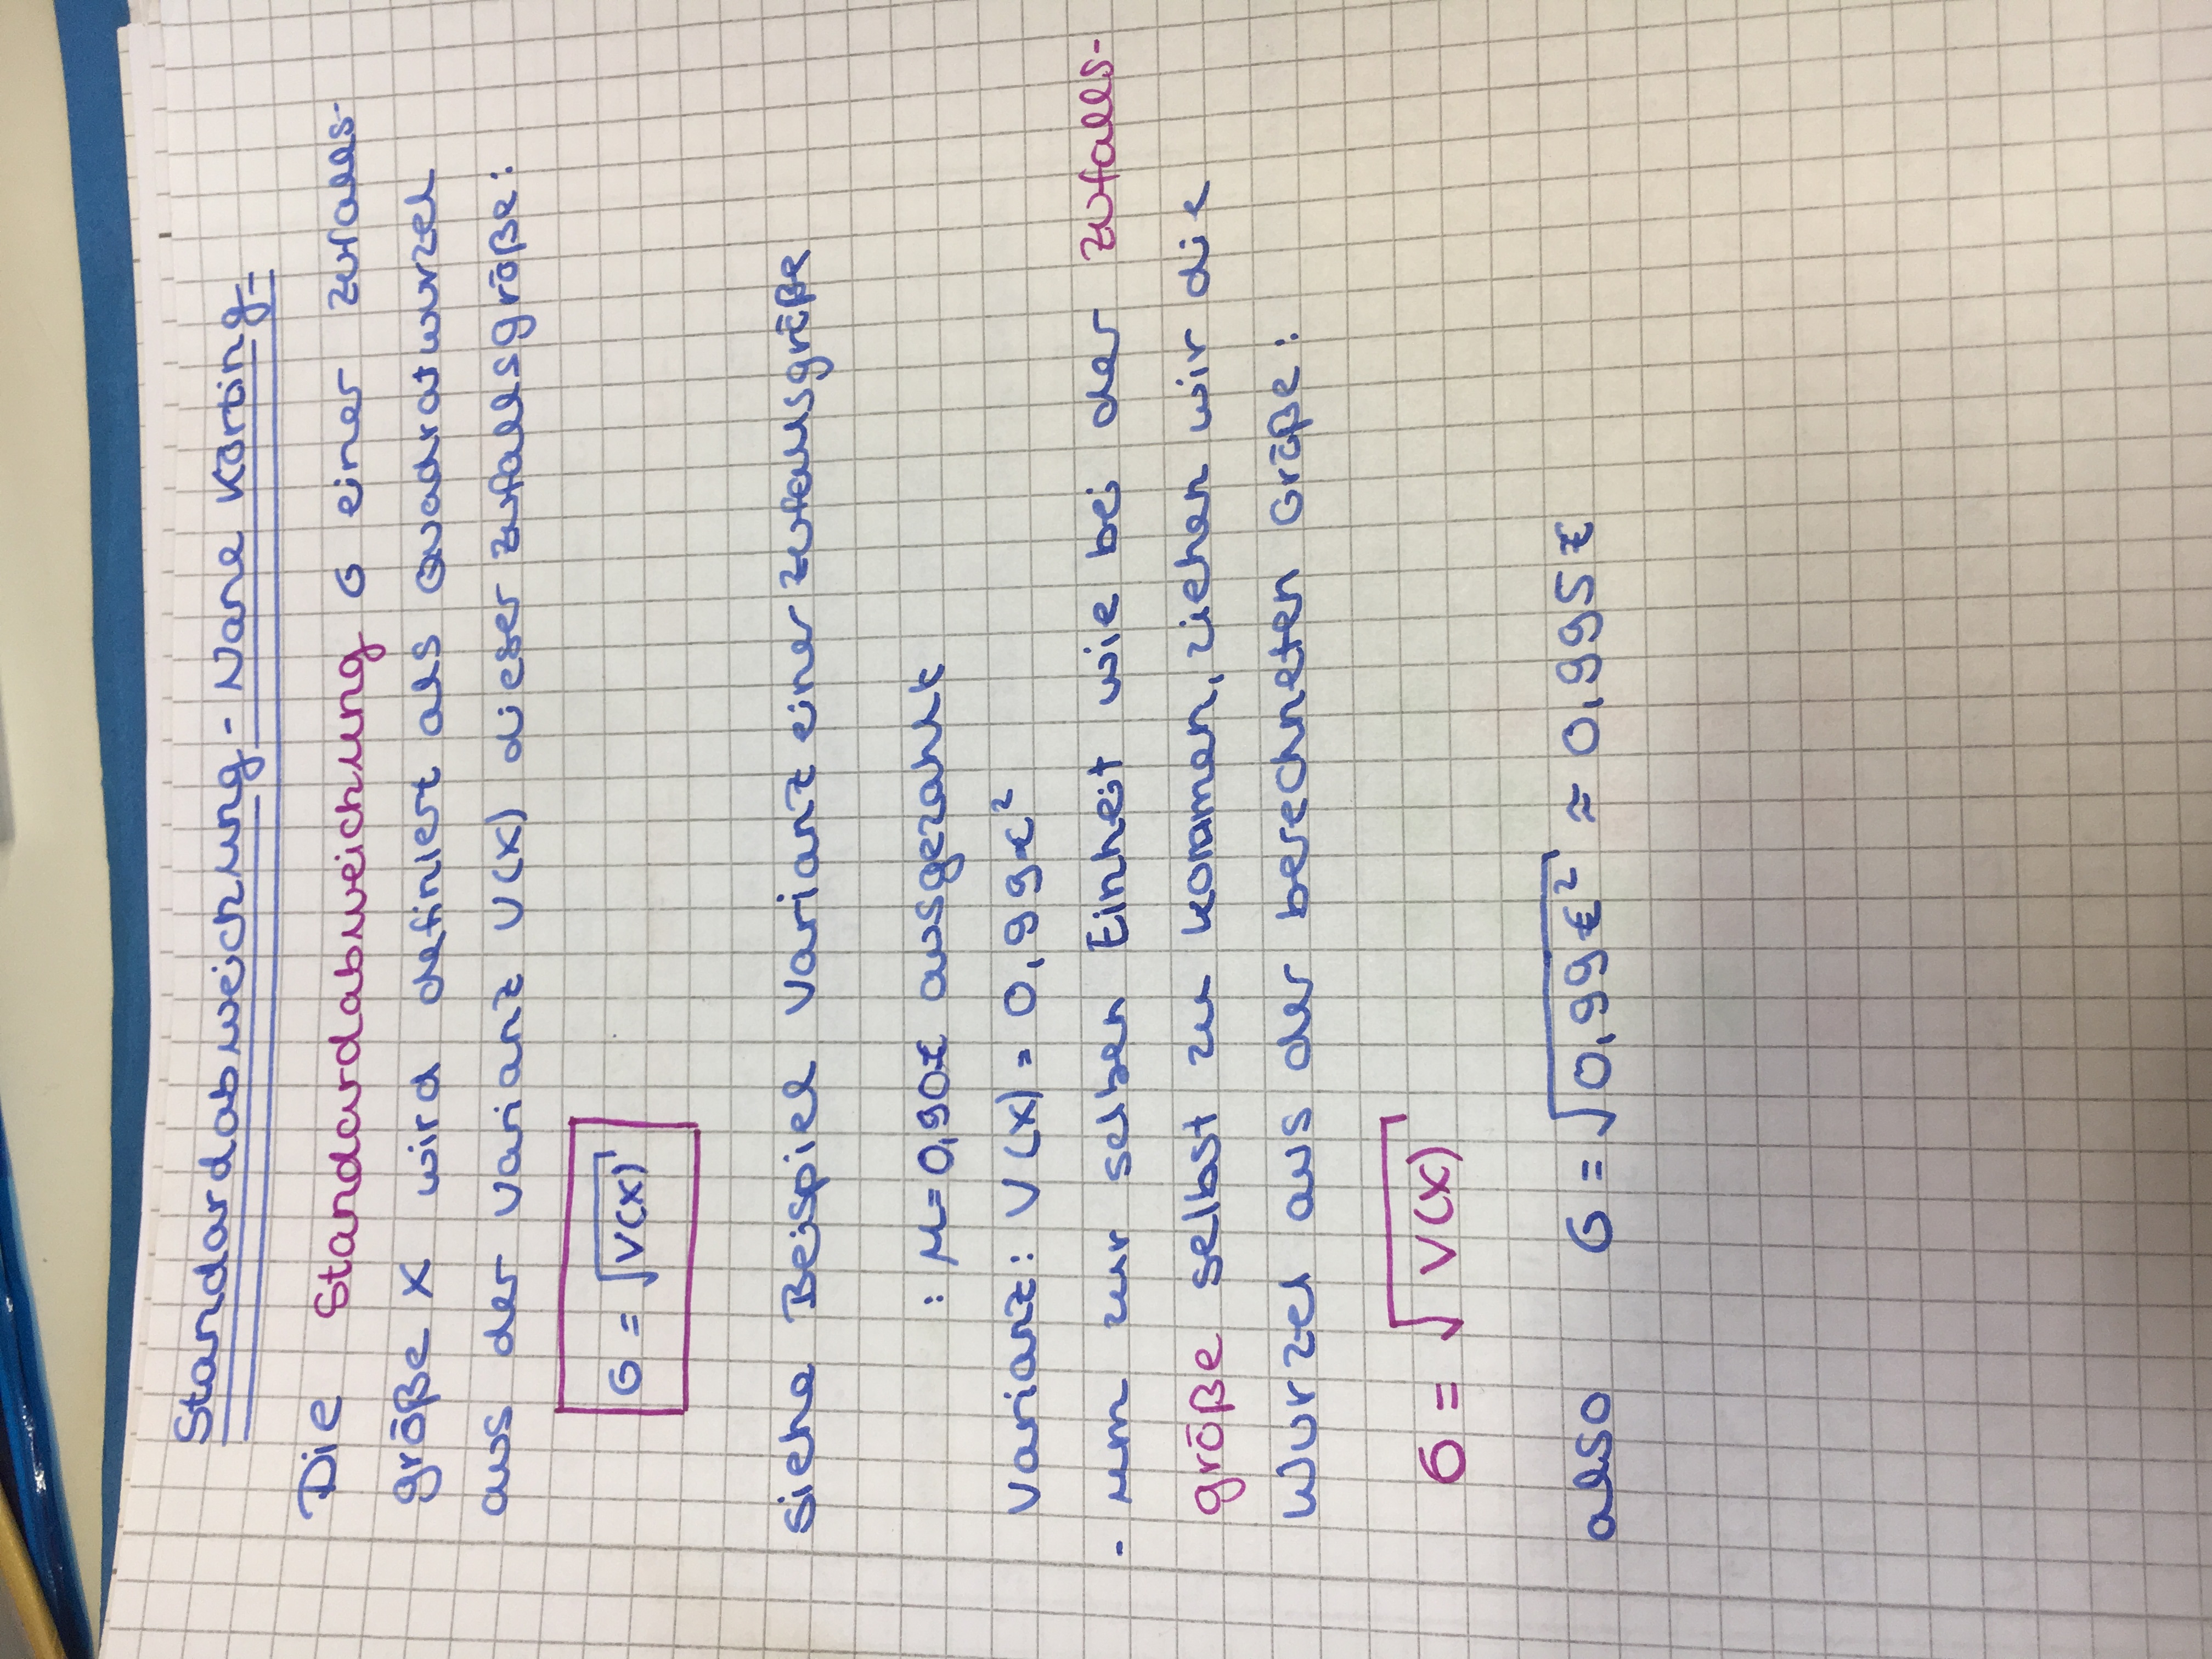 Standardabweichung - Nane Köring -
Die Standardabweichung σ einer Zufalls-
größe X wird definiert als Quadratwurzel
aus der Varianz V(X) dieser Zufallsgröße:
σ = √V(X)
Siehe Beispiel Varianz einer Zufallsgröße
: μ = 0,90€ ausgezahlt
Varianz: V(X) = 0,99€²
- um zur selben Einheit wie bei der Zufalls-
größe selbst zu kommen, ziehen wir die
Wurzel aus der berechneten Größe:
σ = √V(X)
also σ = √0,99€² ≈ 0,995€